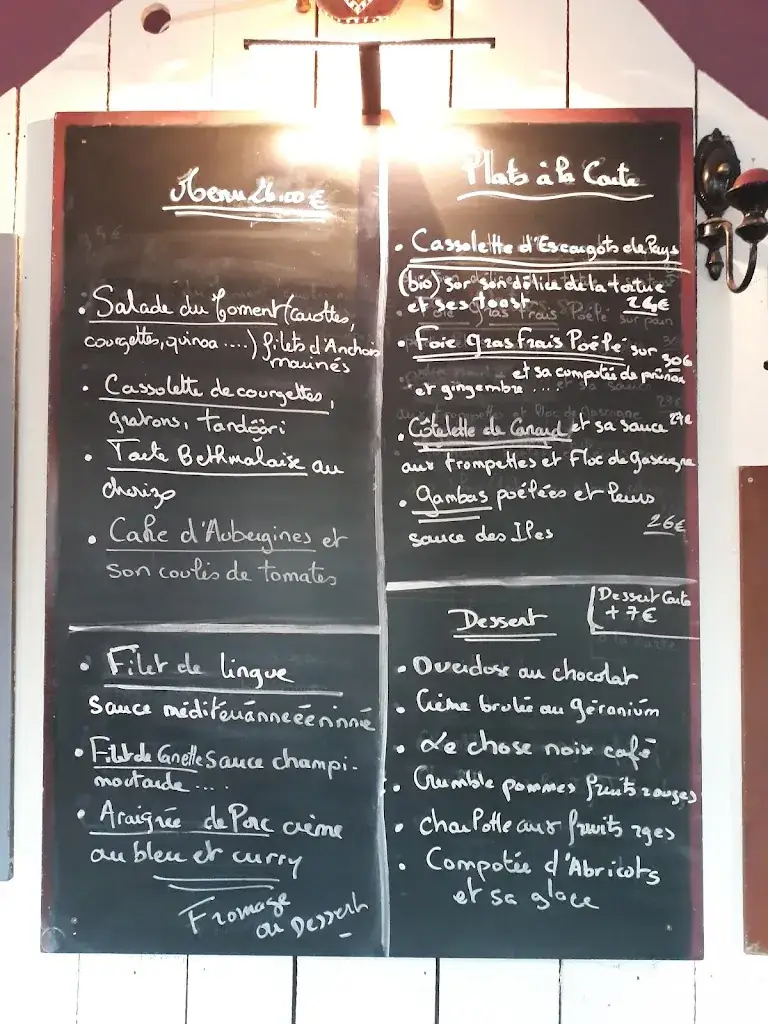 Menu 26.00 €
• Salade du moment (carottes,
courgettes, quinoa ....) filets d'Anchois
marinés
• Cassolette de courgettes,
gratons, tandoori
• Tarte Bethmalaise au
chorizo
• Cake d'Aubergines et
son coulis de tomates
• Filet de lingue
sauce méditerránnéeéninnié
• Filet de Canette sauce champi-
moutarde .....
• Araignée de Porc crème
au bleu et curry
Fromage
ou Dessert
Plats à la Carte
• Cassolette d'Escargots de Pays
(bio) sur son délice de la tortue
et ses toast 26€
• Foie gras frais Poêlé sur 30€
et sa compotée de prunau
et gingembre ...
• Côtelette de Canard et sa sauce 27€
aux trompettes et Floc de Gascogne
• Gambas poélées et leurs
sauce des Iles 26€
Dessert
Dessert Carte
+ 7€
• Overdose au chocolat
• Crème brulée au géranium
• Le chose noix café
• Crumble pommes fruits rouges
• Charlotte aux fruits rges
• Compotée d'Abricots
et sa glace